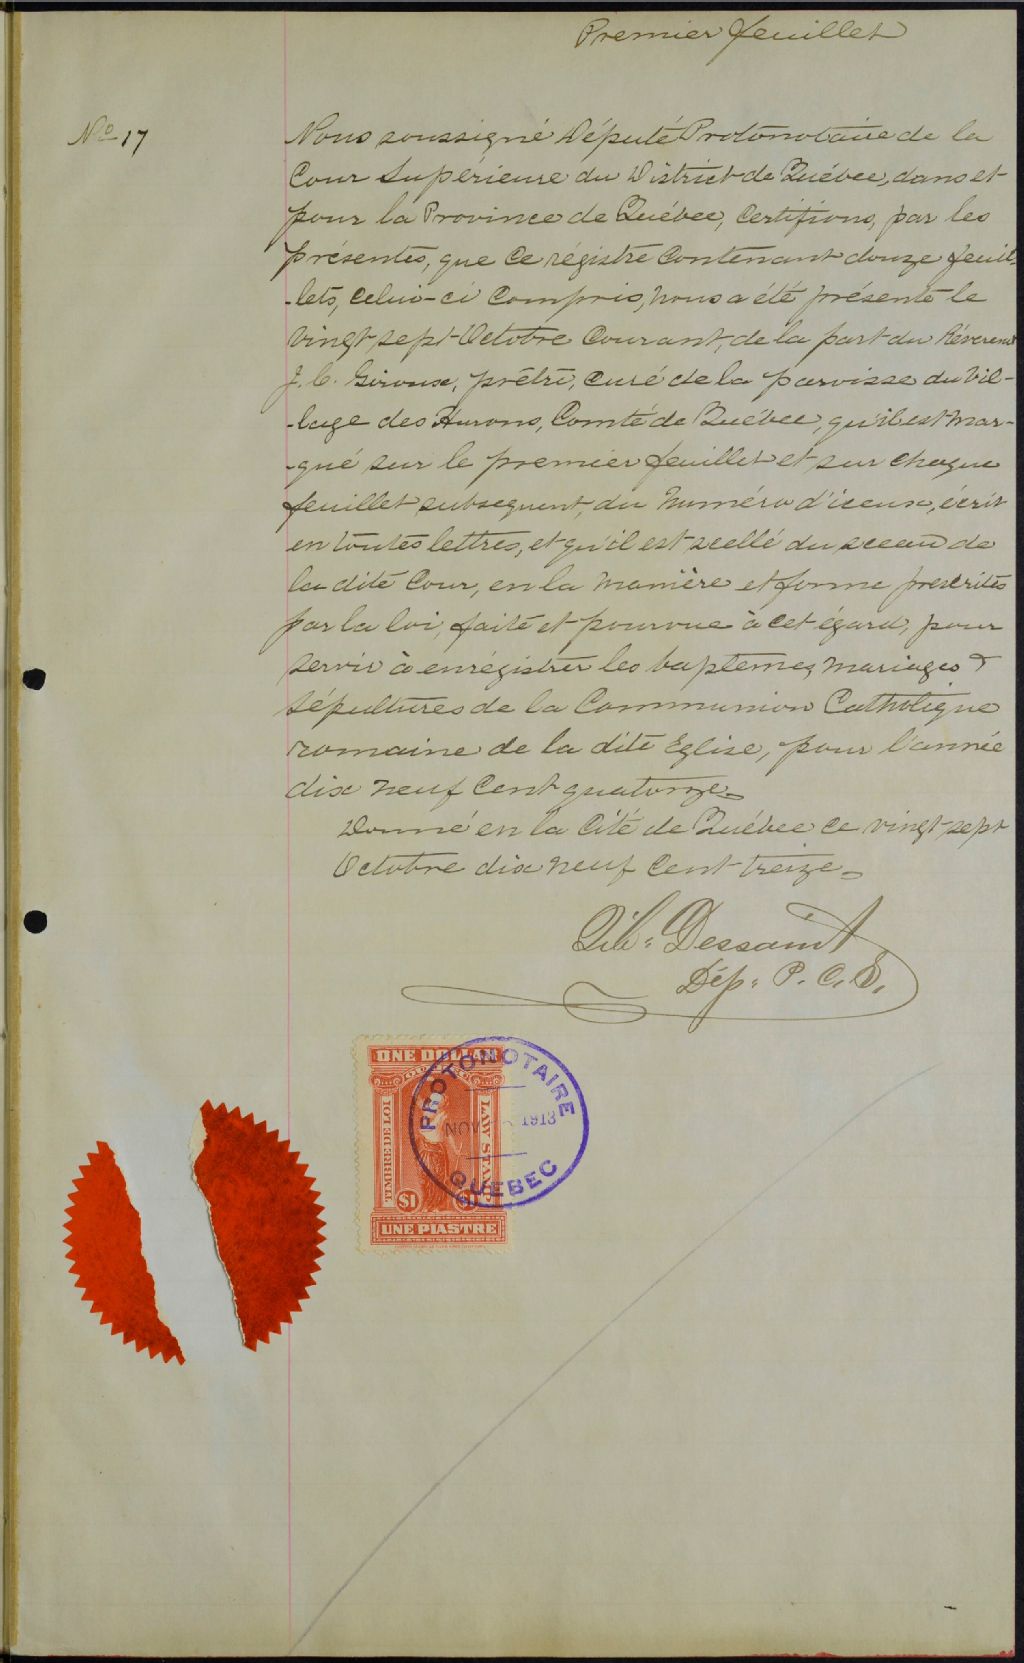 Premier feuillet
No 17
Nous soussigné Député Protonotaire de la
Cour Supérieure du District de Québec, dans et
pour la Province de Québec, Certifions, par les
présentes, que ce régistre contenant douze feuil-
-lets, celui-ci compris, nous a été présenté le
vingt sept Octobre courant, de la part du Révérend
J. C. Giroux, prêtre, curé de la paroisse du Vil-
-lage des Hurons, Comté de Québec, qu'il est mar-
-qué sur le premier feuillet et sur chaque
feuillet subsequent, du numéro d'iceux, écrit
en toutes lettres, et qu'il est scellé du sceau de
la dite Cour, en la manière et forme prescrites
par la loi, faite et pourvue à cet égard, pour
servir à enrégistrer les baptêmes, mariages &
sépultures de la Communion Catholique
romaine de la dite Eglise, pour l'année
dix neuf cent quatorze.
Donné en la Cité de Québec ce vingt sept
Octobre dix neuf cent treize.
Dessaint
Dép. P. C. S.
ONE DOLLAR
TIMBRE DE LOI
LAW STAMP
$1
UNE PIASTRE
PROTONOTAIRE
NOV 1913
QUEBEC